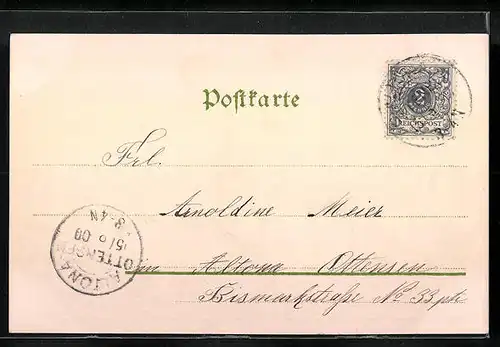 Postkarte
2
REICHSPOST
3-4N
Frl.
Arnoldine Meier
in Altona Ottensen
Bismarkstraße No 33 ptr
ALTONA
OTTENSEN
15/6 00
3-4N